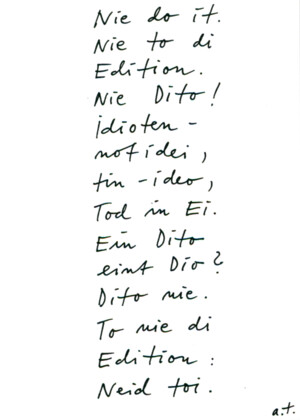 Nie do it.
Nie to di
Edition.
Nie Dito!
Idioten-
notidei,
tin-ideo,
Tod in Ei.
Ein Dito
eint Dio?
Dito nie.
To nie di
Edition:
Neid toi.
a.t.